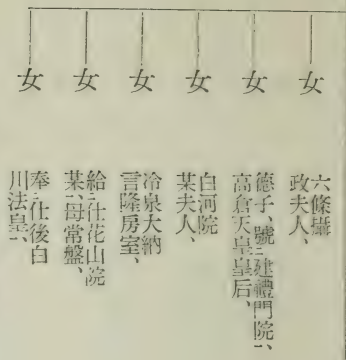 女
六條攝
政夫人、
女
德子、號㆓建禮門院㆒、
高倉天皇皇后、
女
白河院
某夫人、
女
冷泉大納
言隆房室、
女
給㆓仕花山院
某㆒、母常盤、
女
奉㆓仕後白
川法皇㆒、